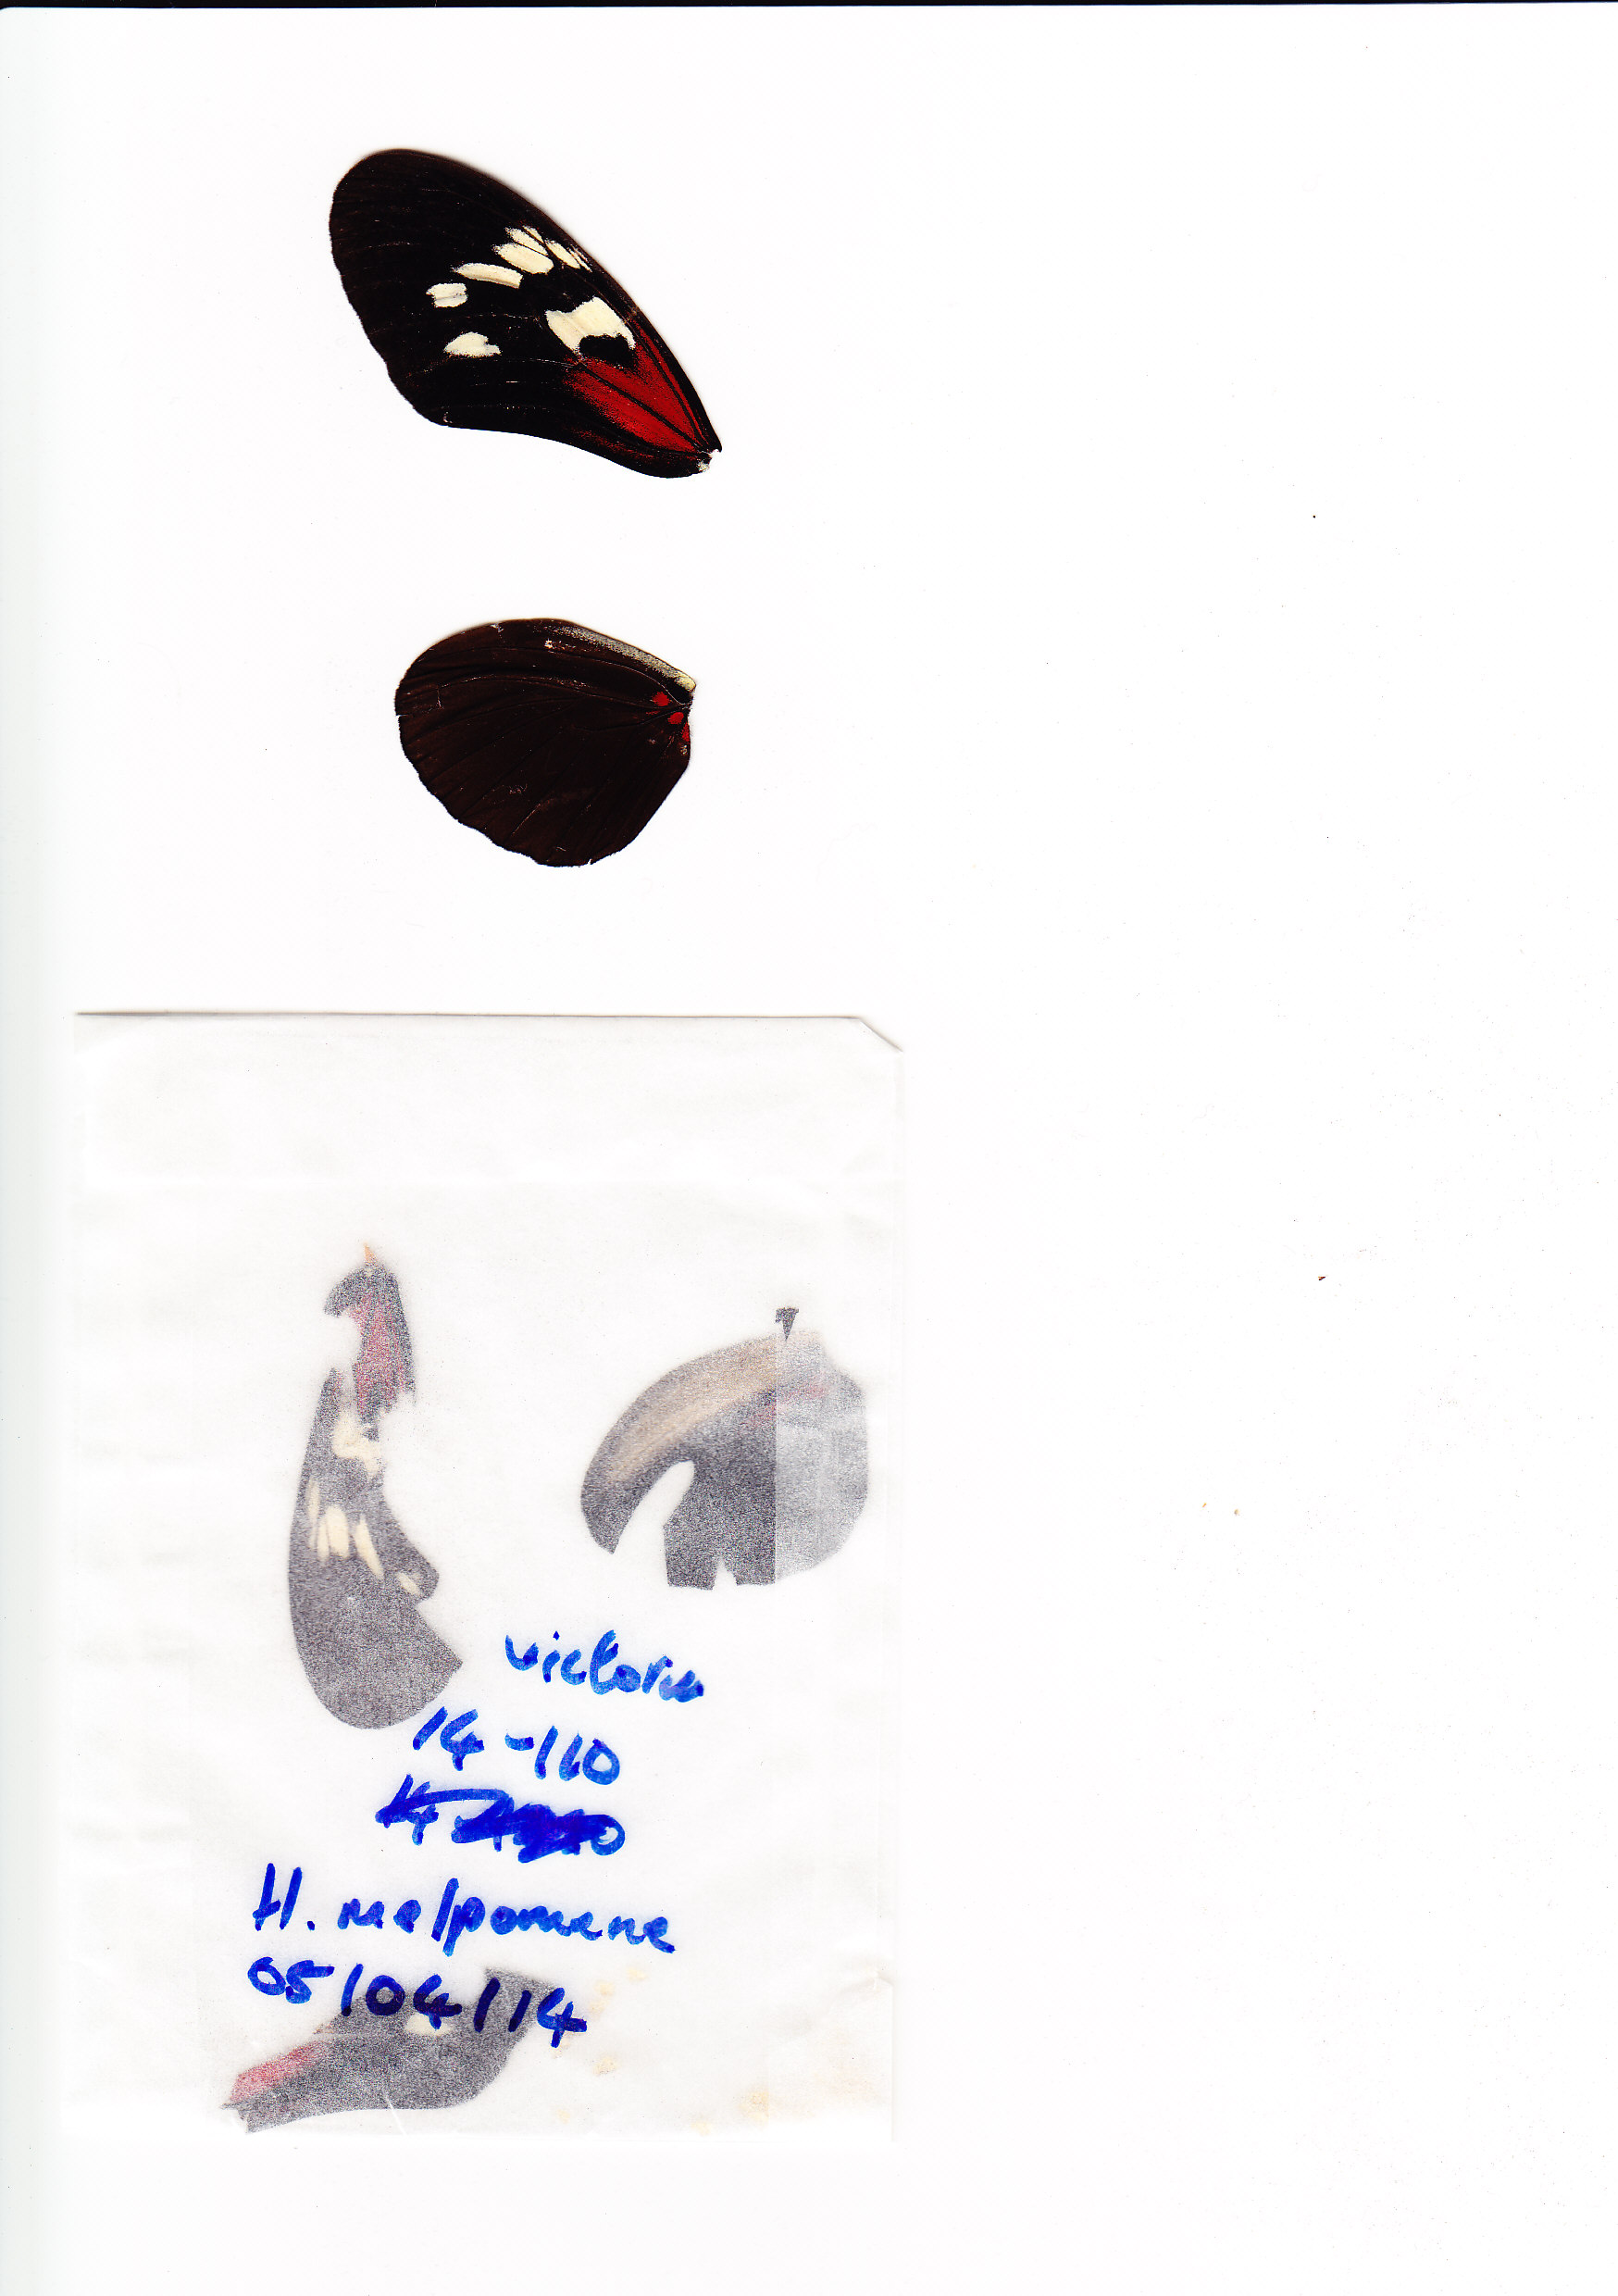 victoria
14-110
H. melpomene
05/04/14